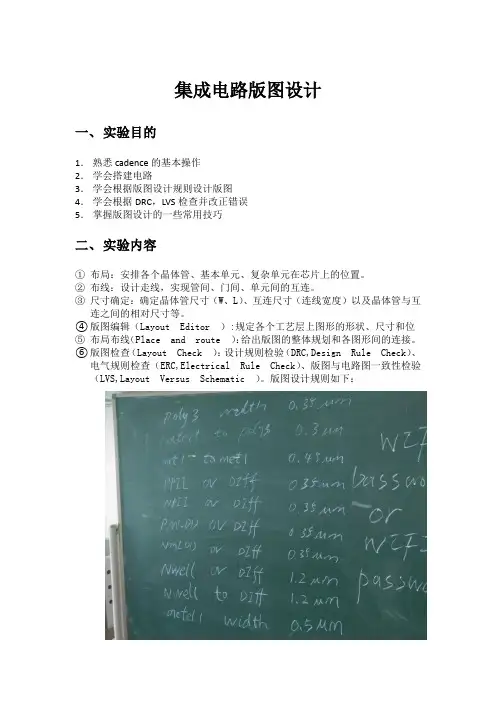 集成电路版图设计
一、实验目的
1. 熟悉 cadence 的基本操作
2. 学会搭建电路
3. 学会根据版图设计规则设计版图
4. 学会根据 DRC，LVS 检查并改正错误
5. 掌握版图设计的一些常用技巧
二、实验内容
① 布局：安排各个晶体管、基本单元、复杂单元在芯片上的位置。
② 布线：设计走线，实现管间、门间、单元间的互连。
③ 尺寸确定：确定晶体管尺寸（W、L）、互连尺寸（连线宽度）以及晶体管与互
连之间的相对尺寸等。
④ 版图编辑（Layout Editor ）:规定各个工艺层上图形的形状、尺寸和位
⑤ 布局布线（Place and route ）：给出版图的整体规划和各图形间的连接。
⑥ 版图检查（Layout Check ）：设计规则检验（DRC,Design Rule Check）、
电气规则检查（ERC,Electrical Rule Check）、版图与电路图一致性检验
（LVS,Layout Versus Schematic ）。版图设计规则如下：
width 0.35um
to poly3 0.3um
to met1 0.45um
ov Diff 0.35um
ov Diff 0.35um
ov Diff 0.35um
ov Diff 0.35um
Nwell ov Diff 1.2um
Nwell to Diff 1.2um
metel1 width 0.5um
passwo
or
passw